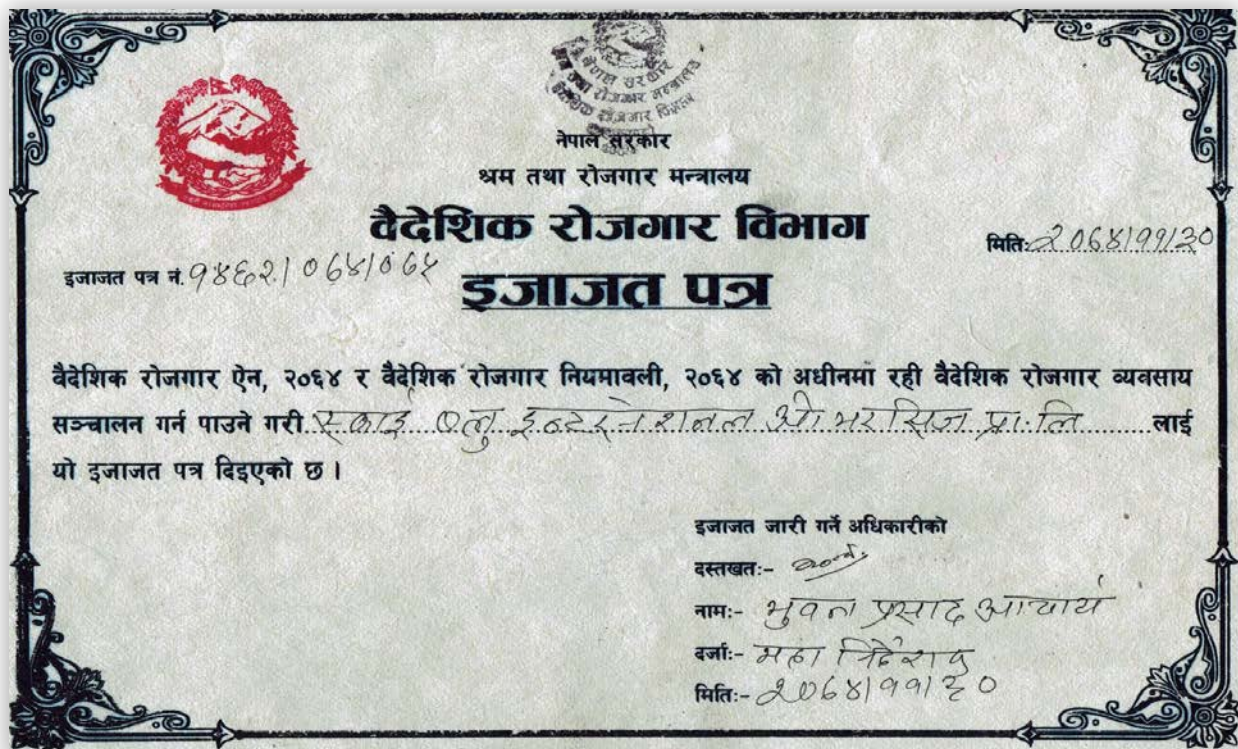 नेपाल सरकार
नेपाल सरकार
श्रम तथा रोजगार मन्त्रालय
वैदेशिक रोजगार विभाग
मिति: २०६४।११।३०
इजाजत पत्र नं. १४६२।०६४/०६५
इजाजत पत्र
वैदेशिक रोजगार ऐन, २०६४ र वैदेशिक रोजगार नियमावली, २०६४ को अधीनमा रही वैदेशिक रोजगार व्यवसाय
सञ्चालन गर्न पाउने गरी स्काई ब्लु इन्टरनेशनल ओभरसिज प्रा.लि लाई
यो इजाजत पत्र दिइएको छ ।
इजाजत जारी गर्ने अधिकारीको
दस्तखत:-
नाम:- भुवन प्रसाद आचार्य
दर्जा:- महा निर्देशक
मिति:- २०६४।११।३०